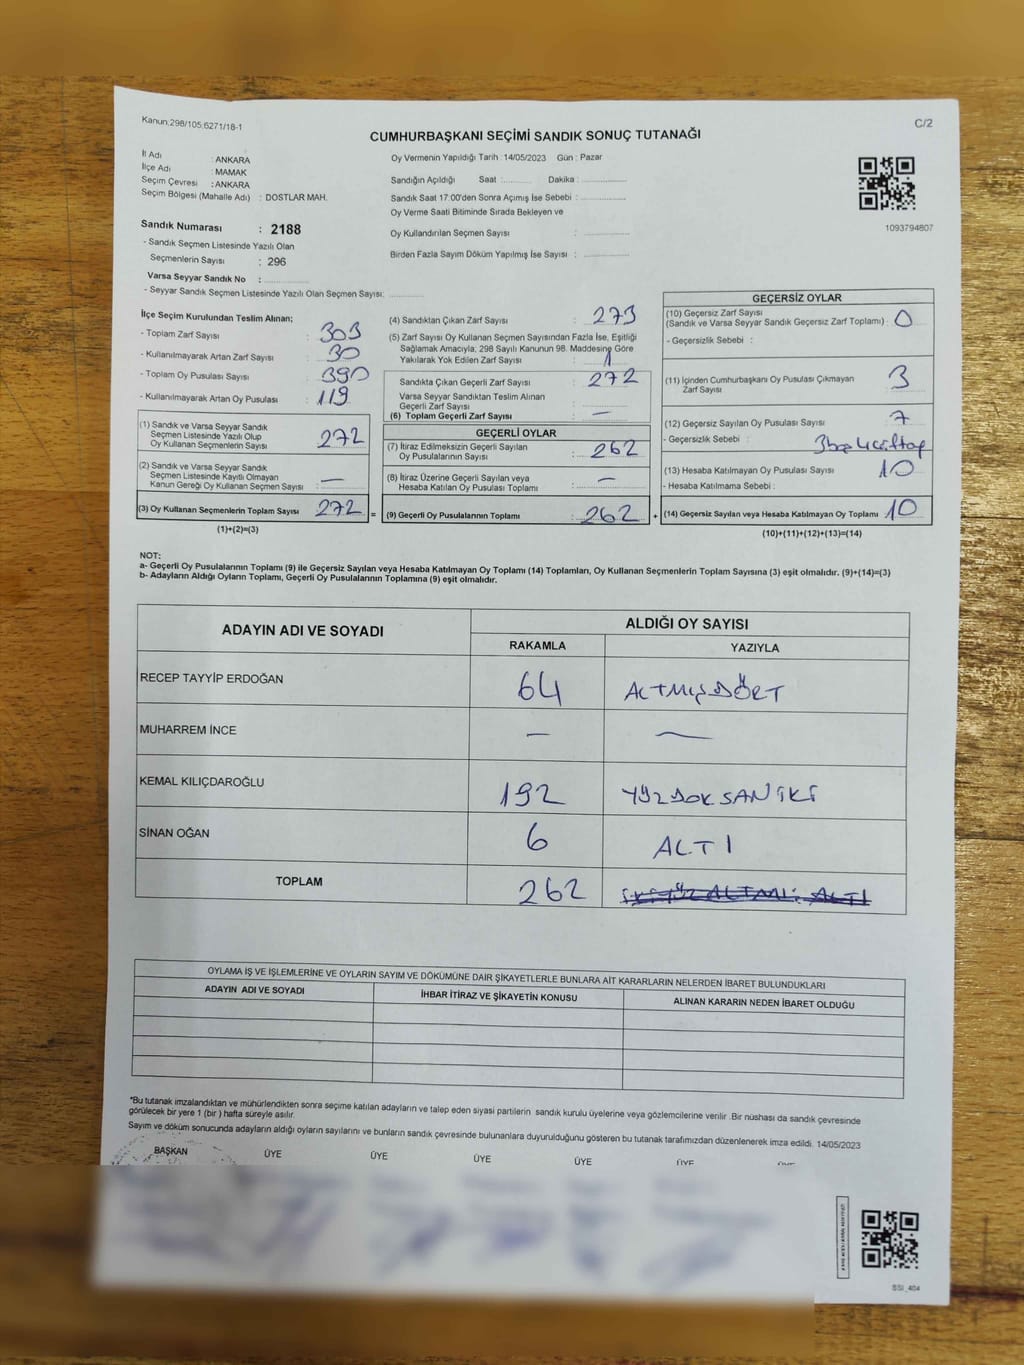 Kanun;298/105;6271/18-1
C/2
CUMHURBAŞKANI SEÇİMİ SANDIK SONUÇ TUTANAĞI
İl Adı : ANKARA
İlçe Adı : MAMAK
Seçim Çevresi : ANKARA
Seçim Bölgesi (Mahalle Adı) : DOSTLAR MAH.
Oy Vermenin Yapıldığı Tarih : 14/05/2023 Gün : Pazar
Sandığın Açıldığı Saat :.......... Dakika :................
Sandık Saat 17:00'den Sonra Açımış İse Sebebi :................
Oy Verme Saati Bitiminde Sırada Bekleyen ve
Oy Kullandırılan Seçmen Sayısı :................
Birden Fazla Sayım Döküm Yapılmış İse Sayısı :................
1093794807
Sandık Numarası : 2188
- Sandık Seçmen Listesinde Yazılı Olan
Seçmenlerin Sayısı : 296
Varsa Seyyar Sandık No :................
- Seyyar Sandık Seçmen Listesinde Yazılı Olan Seçmen Sayısı:............
İlçe Seçim Kurulundan Teslim Alınan;
- Toplam Zarf Sayısı : 303
- Kullanılmayarak Artan Zarf Sayısı : 30
- Toplam Oy Pusulası Sayısı : 390
- Kullanılmayarak Artan Oy Pusulası : 119
(1) Sandık ve Varsa Seyyar Sandık
Seçmen Listesinde Yazılı Olup
Oy Kullanan Seçmenlerin Sayısı : 272
(2) Sandık ve Varsa Seyyar Sandık
Seçmen Listesinde Kayıtlı Olmayan
Kanun Gereği Oy Kullanan Seçmen Sayısı : —
(3) Oy Kullanan Seçmenlerin Toplam Sayısı 272 =
(1)+(2)=(3)
(4) Sandıktan Çıkan Zarf Sayısı : 273
(5) Zarf Sayısı Oy Kullanan Seçmen Sayısından Fazla İse, Eşitliği
Sağlamak Amacıyla; 298 Sayılı Kanunun 98. Maddesine Göre
Yakılarak Yok Edilen Zarf Sayısı : 1
Sandıkta Çıkan Geçerli Zarf Sayısı : 272
Varsa Seyyar Sandıktan Teslim Alınan
Geçerli Zarf Sayısı :
(6) Toplam Geçerli Zarf Sayısı : —
GEÇERLİ OYLAR
(7) İtiraz Edilmeksizin Geçerli Sayılan
Oy Pusulalarının Sayısı : 262
(8) İtiraz Üzerine Geçerli Sayılan veya
Hesaba Katılan Oy Pusulası Toplamı : —
(9) Geçerli Oy Pusulalarının Toplamı : 262 +
GEÇERSİZ OYLAR
(10) Geçersiz Zarf Sayısı
(Sandık ve Varsa Seyyar Sandık Geçersiz Zarf Toplamı) : 0
- Geçersizlik Sebebi :
(11) İçinden Cumhurbaşkanı Oy Pusulası Çıkmayan
Zarf Sayısı : 3
(12) Geçersiz Sayılan Oy Pusulası Sayısı : 7
- Geçersizlik Sebebi :
(13) Hesaba Katılmayan Oy Pusulası Sayısı : 10
- Hesaba Katılmama Sebebi :
(14) Geçersiz Sayılan veya Hesaba Katılmayan Oy Toplamı : 10
(10)+(11)+(12)+(13)=(14)
NOT:
a- Geçerli Oy Pusulalarının Toplamı (9) ile Geçersiz Sayılan veya Hesaba Katılmayan Oy Toplamı (14) Toplamları, Oy Kullanan Seçmenlerin Toplam Sayısına (3) eşit olmalıdır. (9)+(14)=(3)
b- Adayların Aldığı Oyların Toplamı, Geçerli Oy Pusulalarının Toplamına (9) eşit olmalıdır.
ADAYIN ADI VE SOYADI
ALDIĞI OY SAYISI
RAKAMLA YAZIYLA
RECEP TAYYİP ERDOĞAN 64 ALTMIŞDÖRT
MUHARREM İNCE — —
KEMAL KILIÇDAROĞLU 192 YÜZDOKSANİKİ
SİNAN OĞAN 6 ALTI
TOPLAM 262
OYLAMA İŞ VE İŞLEMLERİNE VE OYLARIN SAYIM VE DÖKÜMÜNE DAİR ŞİKAYETLERLE BUNLARA AİT KARARLARIN NELERDEN İBARET BULUNDUKLARI
ADAYIN ADI VE SOYADI İHBAR İTİRAZ VE ŞİKAYETİN KONUSU ALINAN KARARIN NEDEN İBARET OLDUĞU
*Bu tutanak imzalandıktan ve mühürlendikten sonra seçime katılan adayların ve talep eden siyasi partilerin sandık kurulu üyelerine veya gözlemcilerine verilir .Bir nüshası da sandık çevresinde
görülecek bir yere 1 (bir ) hafta süreyle asılır.
Sayım ve döküm sonucunda adayların aldığı oyların sayılarını ve bunların sandık çevresinde bulunanlara duyurulduğunu gösteren bu tutanak tarafımızdan düzenlenerek imza edildi. 14/05/2023
BAŞKAN ÜYE ÜYE ÜYE ÜYE ÜYE
SSI_404